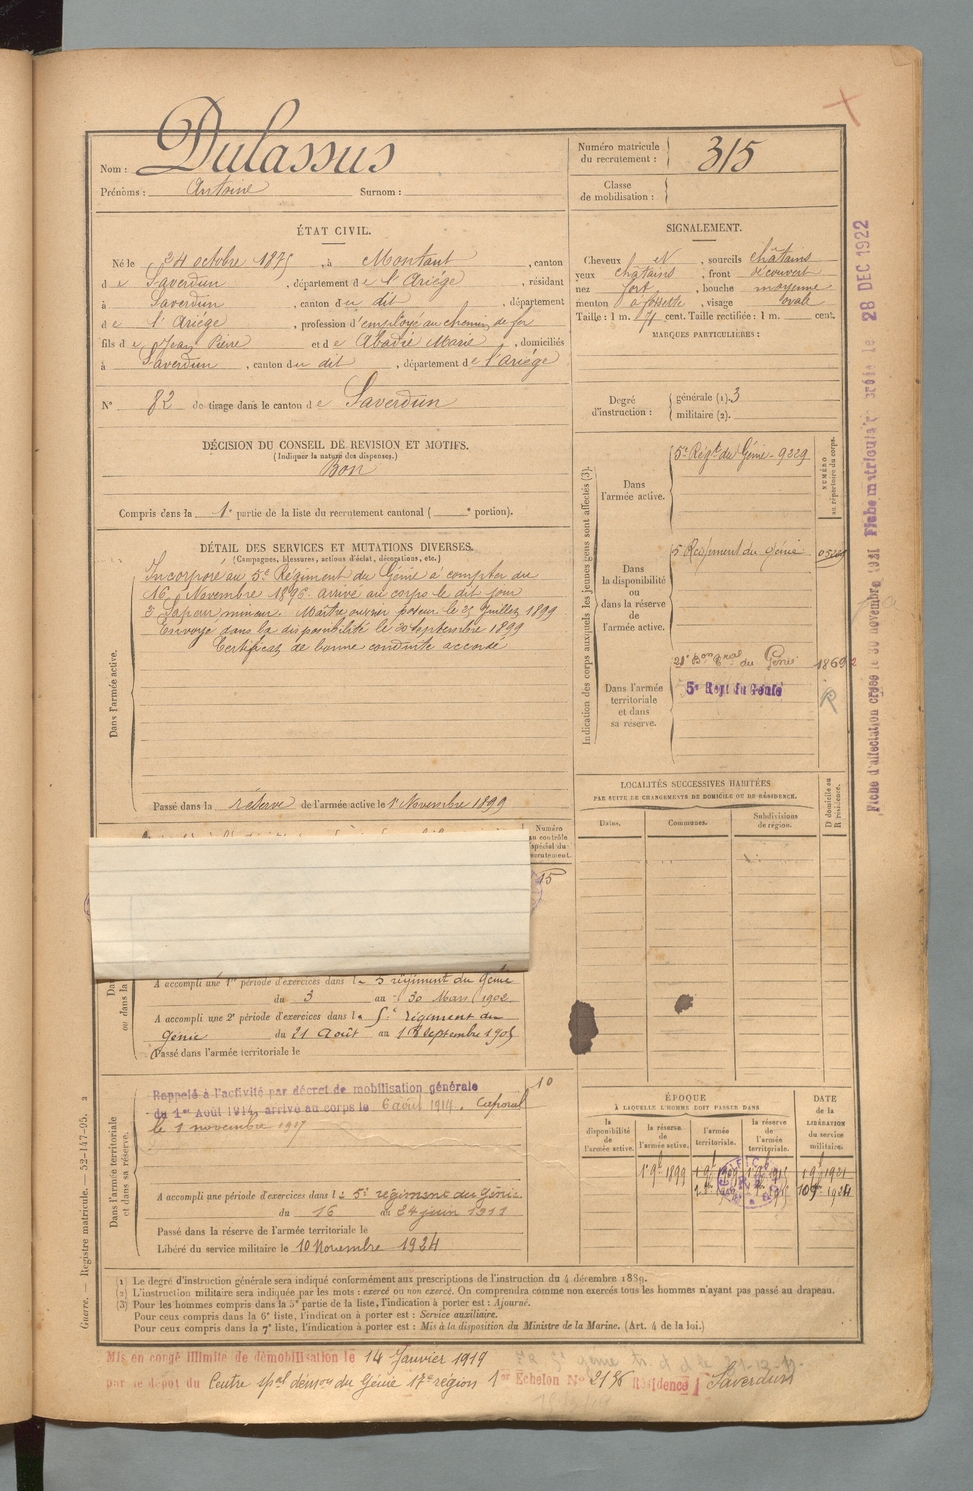 Nom : Dulassus
Prénoms : Antoine Surnom :
Numéro matricule du recrutement : 315
Classe de mobilisation :
ÉTAT CIVIL.
Né le 24 octobre 1875, à Montaut, canton
de Saverdun, département de l'Ariége, résidant
à Saverdun, canton du dit, département
de l'Ariége, profession d'employé au chemin de fer
fils de Jean Pierre et de Abadie Marie, domiciliés
à Saverdun, canton du dit, département de l'Ariége
N° 82 de tirage dans le canton de Saverdun
SIGNALEMENT.
Cheveux et, sourcils châtains
yeux châtains, front découvert
nez fort, bouche moyenne
menton à fossette, visage ovale
Taille : 1 m. 71 cent. Taille rectifiée : 1 m. cent.
MARQUES PARTICULIÈRES :
Degré d'instruction : générale (1). 3
militaire (2).
DÉCISION DU CONSEIL DE REVISION ET MOTIFS.
(Indiquer la nature des dispenses.)
Bon
Compris dans la 1e partie de la liste du recrutement cantonal ( e portion).
DÉTAIL DES SERVICES ET MUTATIONS DIVERSES.
(Campagnes, blessures, actions d'éclat, décorations, etc.)
Dans l'armée active.
Incorporé au 5e Régiment du Génie à compter du
16 Novembre 1896 arrivé au corps le dit jour
Sapeur mineur. Maître ouvrier poseur le 25 Juillet 1899
Envoyé dans la disponibilité le 30 Septembre 1899
Certificat de bonne conduite accordé
Passé dans la réserve de l'armée active le 1 Novembre 1899
Indication des corps auxquels les jeunes gens sont affectés (3).
NUMÉRO au répertoire du corps.
Dans l'armée active.
5e Régt du Génie - 9229
Dans la disponibilité ou dans la réserve de l'armée active.
5 Régiment du Génie
Dans l'armée territoriale et dans sa réserve.
21e Bon du Génie
5e Régt du Génie
LOCALITÉS SUCCESSIVES HABITÉES
PAR SUITE DE CHANGEMENTS DE DOMICILE OU DE RÉSIDENCE.
Dates. Communes. Subdivisions de région. D domicile ou R résidence.
Numéro au contrôle spécial du recrutement.
15
A accompli une 1re période d'exercices dans le 5 régiment du Génie
du 3 au 30 Mars 1902
A accompli une 2e période d'exercices dans le 5e régiment du
Génie du 21 Août au Septembre 1905
Passé dans l'armée territoriale le
Dans l'armée territoriale et dans sa réserve.
10
Rappelé à l'activité par décret de mobilisation générale
du 1er Août 1914, arrivé au corps le 6 août 1914. Caporal
le 1 novembre 1917
A accompli une période d'exercices dans le 5e régiment du Génie
du 16 au 24 juin 1911
Passé dans la réserve de l'armée territoriale le
Libéré du service militaire le 10 Novembre 1924
ÉPOQUE
À LAQUELLE L'HOMME DOIT PASSER DANS
la disponibilité de l'armée active. la réserve de l'armée active. l'armée territoriale. la réserve de l'armée territoriale.
DATE de la LIBÉRATION du service militaire.
1899
(1) Le degré d'instruction générale sera indiqué conformément aux prescriptions de l'instruction du 4 décembre 1889.
(2) L'instruction militaire sera indiquée par les mots : exercé ou non exercé. On comprendra comme non exercés tous les hommes n'ayant pas passé au drapeau.
(3) Pour les hommes compris dans la 5e partie de la liste, l'indication à porter est : Ajourné.
Pour ceux compris dans la 6e liste, l'indication à porter est : Service auxiliaire.
Pour ceux compris dans la 7e liste, l'indication à porter est : Mis à la disposition du Ministre de la Marine. (Art. 4 de la loi.)
Mis en congé illimité de démobilisation le 14 Janvier 1919
par le dépôt du Centre spal démon du Génie 17e région 1er Echelon N° 2136 Résidence Saverdun
Guerre. — Registre matricule. — 52-147-95.
Fiche d'affectation créée le 30 novembre 1921 Fiche matricule créée le 28 DEC 1922